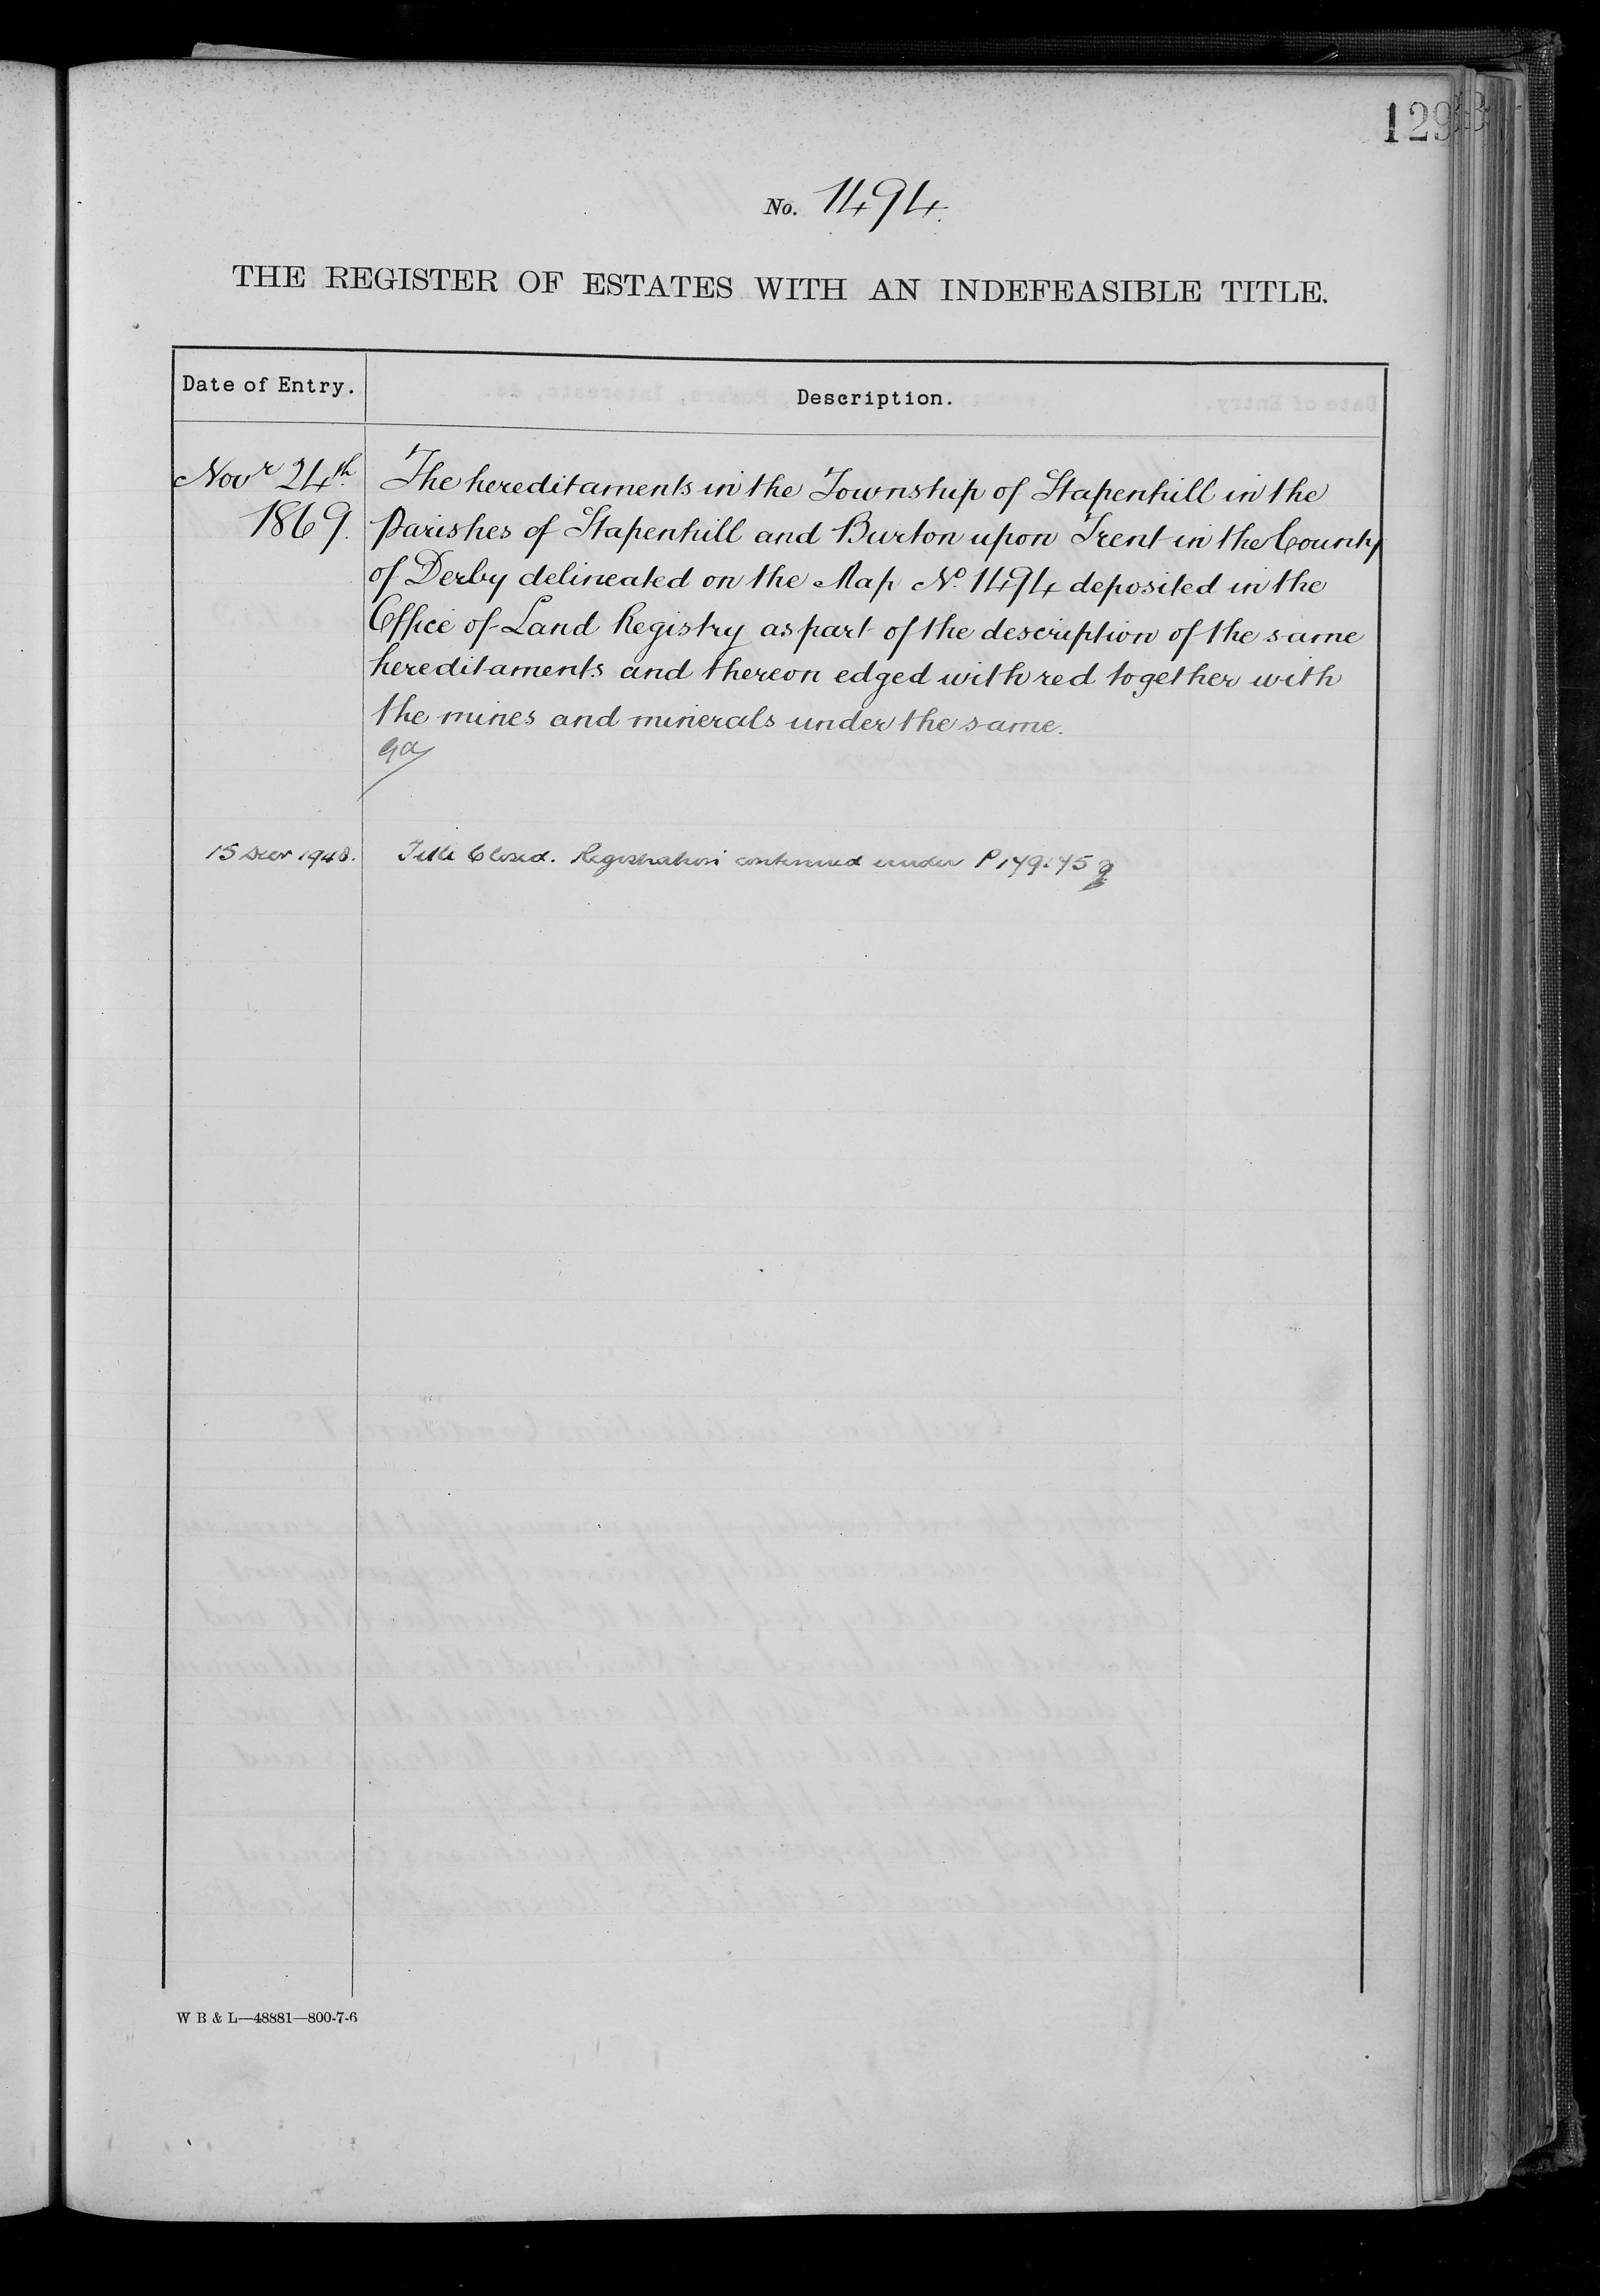 129
No. 1494.
THE REGISTER OF ESTATES WITH AN INDEFEASIBLE TITLE.
Date of Entry.
Description.
Novr 24th
1869.
The hereditaments in the Township of Stapenhill in the
Parishes of Stapenhill and Burton upon Trent in the County
of Derby delineated on the Map No. 1494 deposited in the
Office of Land Registry as part of the description of the same
hereditaments and thereon edged with red together with
the mines and minerals under the same.
15 Decr 1948.
Title Closed. Registration continued under
W B & L—48881—800-7-6